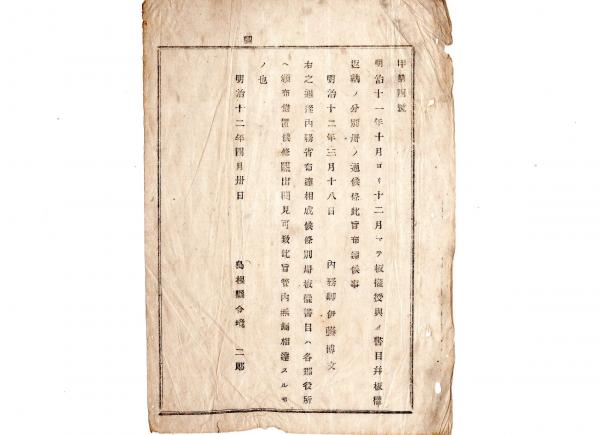 甲第四號
明治十一年十月ヨリ十二月マテ板權授與ノ書目并板權
返納ノ分別冊ノ通候條此旨布達候事
明治十二年三月十八日
內務卿伊藤博文
右之通內務省布達相成候條別冊板權書目ハ各郡役所
ヘ頒布備置候條願出閲見可致此旨管內無漏相達スルモ
ノ也
明治十二年四月卅日
島根縣令境二郎